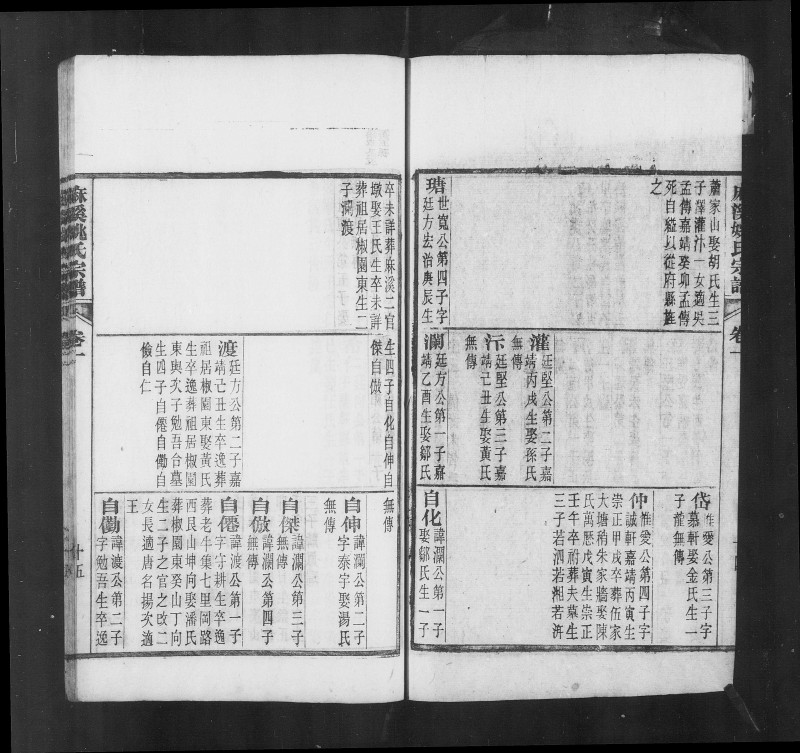 麻溪姚氏宗譜
卷一
蕭家山娶胡氏生三
子澤灌汴一女適吳
孟傳嘉靖癸卯孟傳
死自縊以從府縣旌
之
瑭世寬公第四子字
廷方宏治庚辰生
灌廷堅公第二子嘉
靖丙戌生娶孫氏
無傳
汴廷堅公第三子嘉
靖己丑生娶黃氏
無傳
瀾廷方公第一子嘉
靖乙酉生娶鄒氏
岱惟愛公第三子字
慕軒娶金氏生一
子龍無傳
仲惟愛公第四子字
誠軒嘉靖丙寅生
崇正甲戌卒葬伍家
大塘稍朱家牆娶陳
氏萬歷戊寅生崇正
壬午卒祔葬夫墓生
三子若泗若湘若洴
自化諱瀾公第一子
娶鄒氏生一子
卒未詳葬麻溪二官
墩娶王氏生卒未詳
葬祖居椒園東生二
子瀾渡
生四子自化自伸自
傑自傲
渡廷方公第二子嘉
靖己丑生卒逸葬
祖居椒園東娶黃氏
生卒逸葬祖居椒園
東與次子勉吾合墓
生四子自僊自勱自
儉自仁
無傳
自伸諱瀾公第二子
字泰宇娶湯氏
無傳
自傑諱瀾公第三子
無傳
自傲諱瀾公第四子
無傳
自僊諱渡公第一子
字守耕生卒逸
葬老牛集七里岡路
西艮山坤向娶潘氏
葬椒園東癸山丁向
生二子之官之改二
女長適唐名揚次適
王
自勱諱渡公第二子
字勉吾生卒逸
麻溪姚氏宗譜
卷一
十五